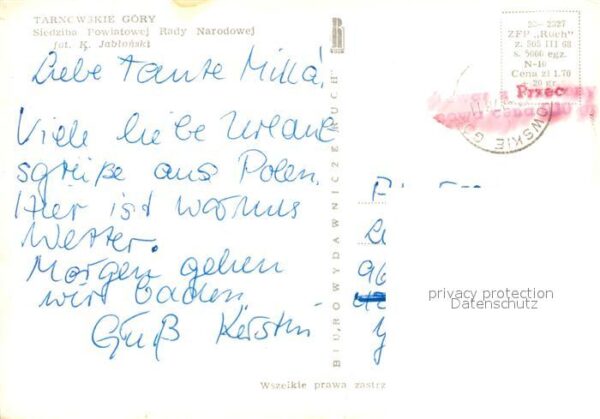 TARNOWSKIE GÓRY
Siedziba Powiatowej Rady Narodowej
fot. K. Jabłoński
Liebe Tante Milla!
Viele liebe Urlaubs
sgrüße aus Polen.
Hier ist warmes
Wetter.
Morgen gehen
wir baden.
Gruß Kerstin
BIURO WYDAWNICZE „RUCH”
ZFP „Ruch”
z. 505 111 68
s. 5000 egz.
N-10
Cena zł 1.70
+ 20 gr
Przec
OWSKIE G
96
privacy protection
Datenschutz
Wszelkie prawa zastrz